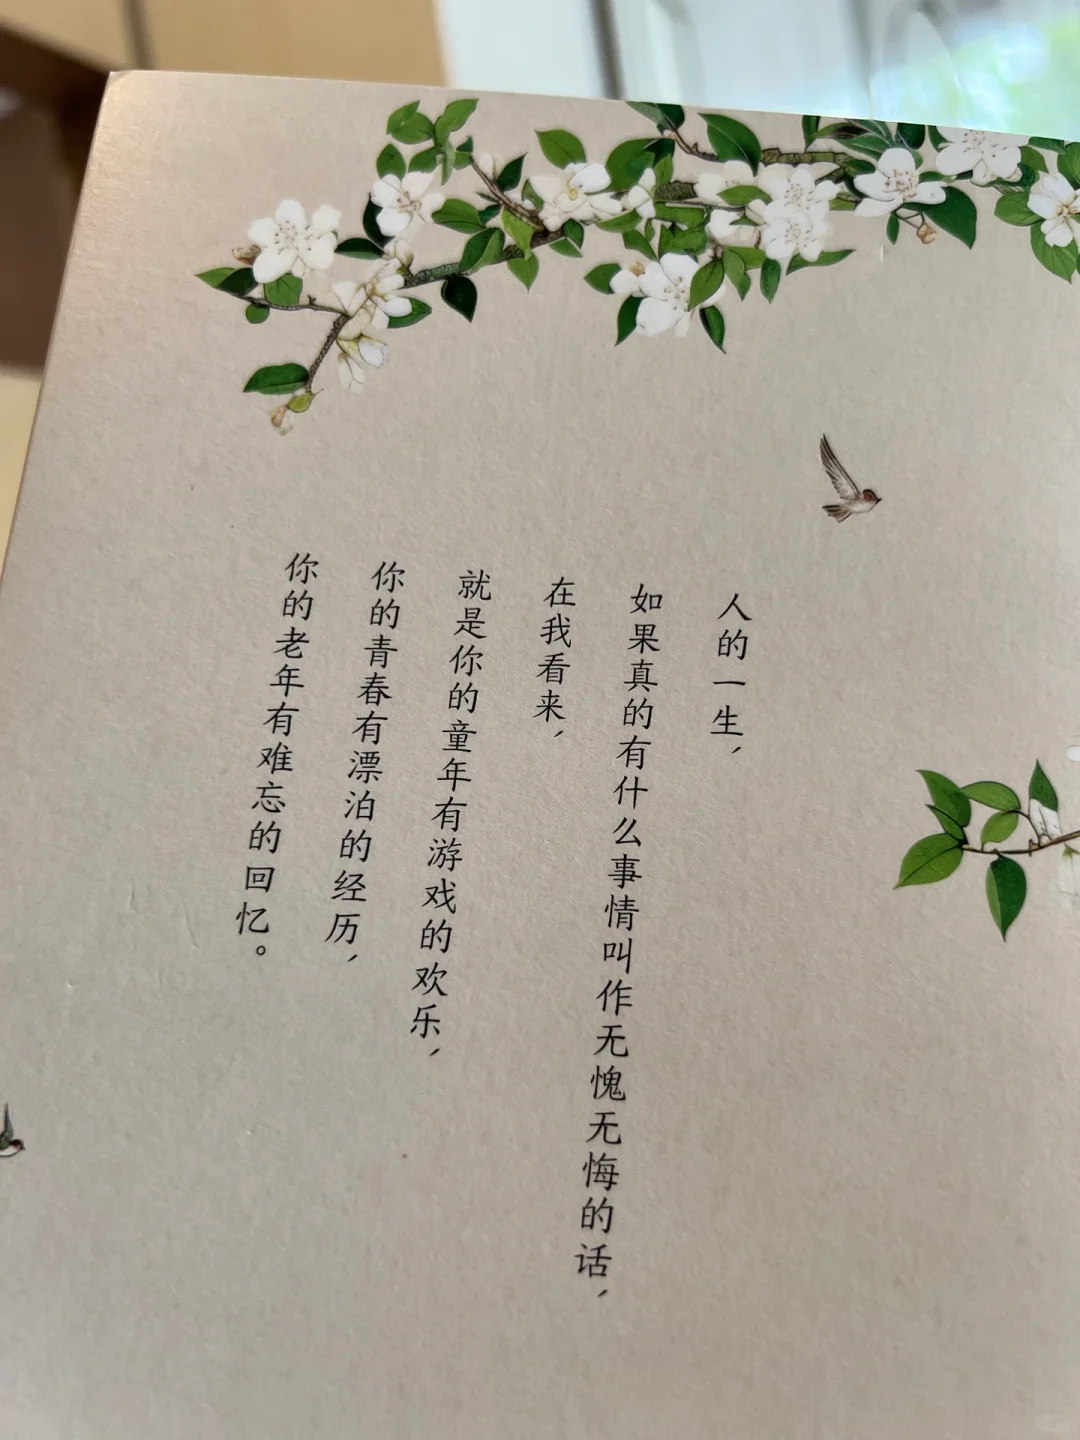 人的一生，
如果真的有什么事情叫作无愧无悔的话，
在我看来，
就是你的童年有游戏的欢乐，
你的青春有漂泊的经历，
你的老年有难忘的回忆。